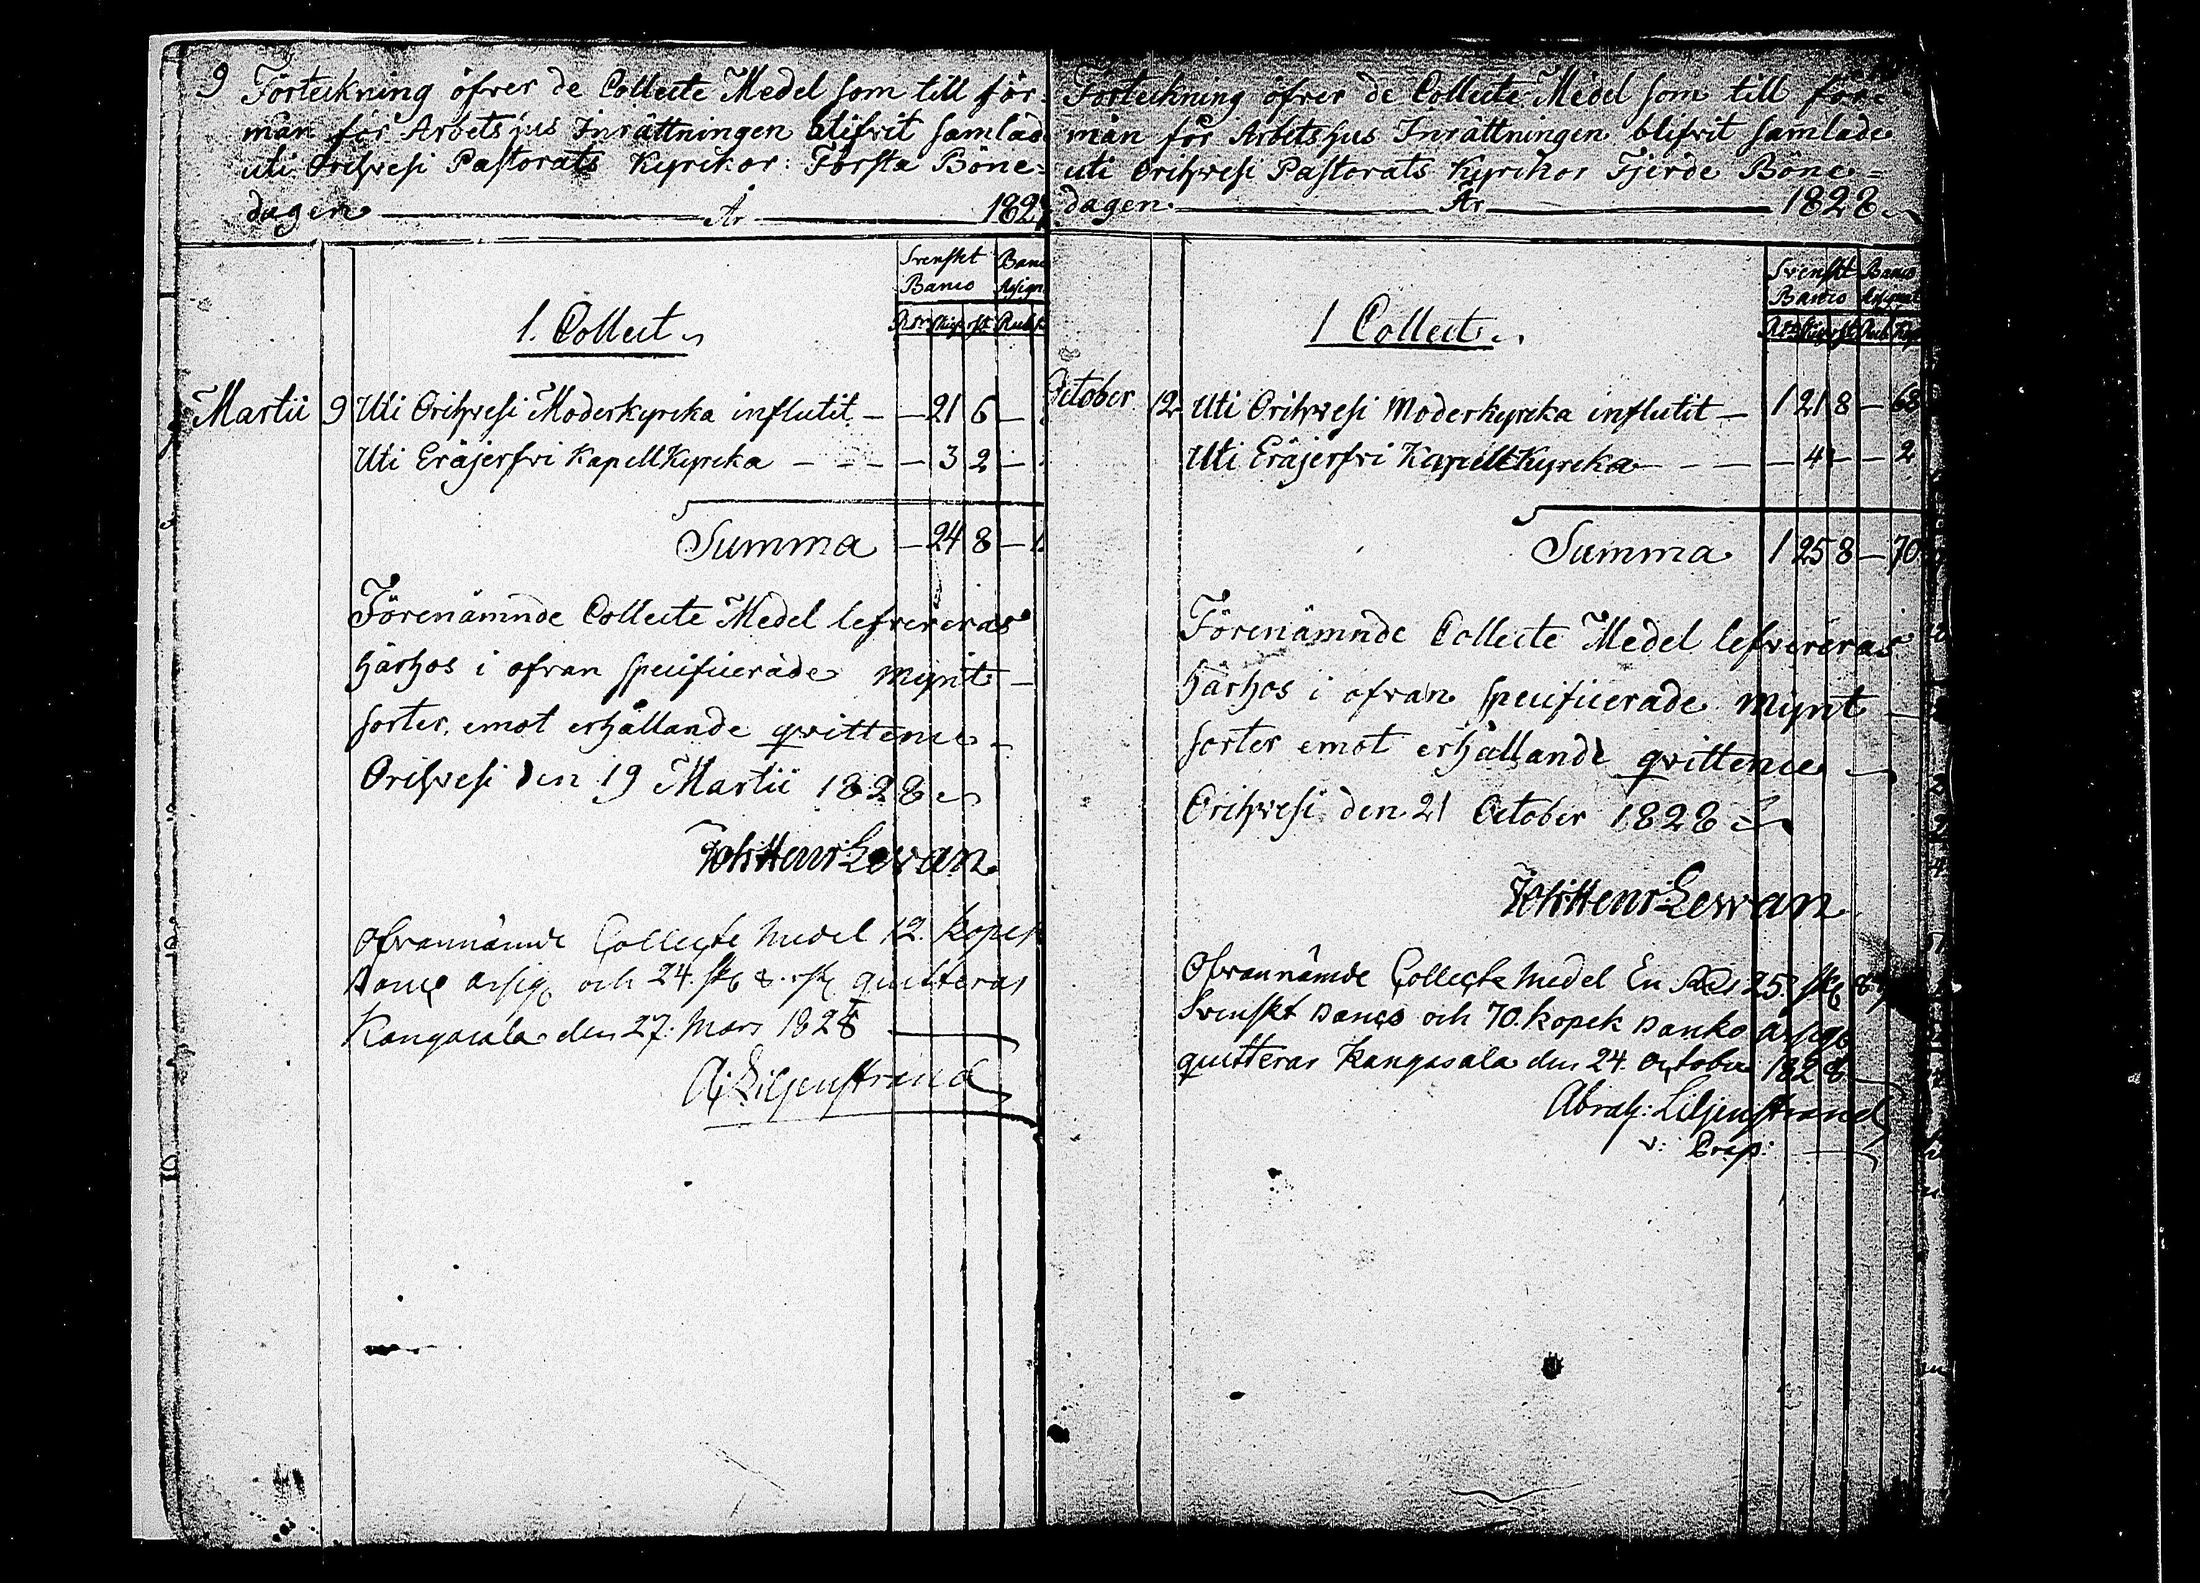 9 Förteckning öfver de Collecte Medel som till för-
mån för Arbetshus Inrättningen blifvit samlade
uti Orihvesi Pastorats Kyrckor: Första Böne-
dagen År 182
Svenskt Banco
Banco Assign
Rdr Skg rst Rub
1. Collect
Martii 9 Uti Orihvesi Moderkyrcka influtit — — 21 6 —
Uti Eräjerfvi KapellKyrcka — — — — 3 2 —
Summa — 24 8 — 1
Förenämnde Collecte Medel lefvereras
härhos i ofvan specificerade Mynt
sorter, emot erhållande qvittence
Orihvesi den 19 Martii 1828
Joh Henr Levan
Ofvannämde Collecte Medel 12. Kopek
Banco assig. och 24. sk 8. rst quitteras
Kangasala den 27. Mars 1828
A Liljenstrand
Förteckning öfver de Collecte Medel som till för-
mån för Arbetshus Inrättningen blifvit samlade
uti Orihvesi Pastorats Kyrckor Fjerde Böne-
dagen. År 1828
Svenskt Banco
Banco Assignat
Rdr Skg rst Rub Kop
1 Collect
October 12 Uti Orihvesi Moderkyrcka influtit — 1 21 8 — 68
Uti Eräjerfvi KapellKyrcka — — — — 4 — — 2
Summa 1 25 8 — 70
Förenämnde Collecte Medel lefvereras
härhos i ofvan specificerade Mynt
sorter emot erhållande qvittence
Orihvesi den 21 October 1828
Joh Henr Levan
Ofvannämde Collecte Medel En Rdr 25 sk 8
Svenskt Banco och 70. kopek Banko assig
quitteras Kangasala den 24. October 1828
Abrah: Liljenstrand
v: Prap: